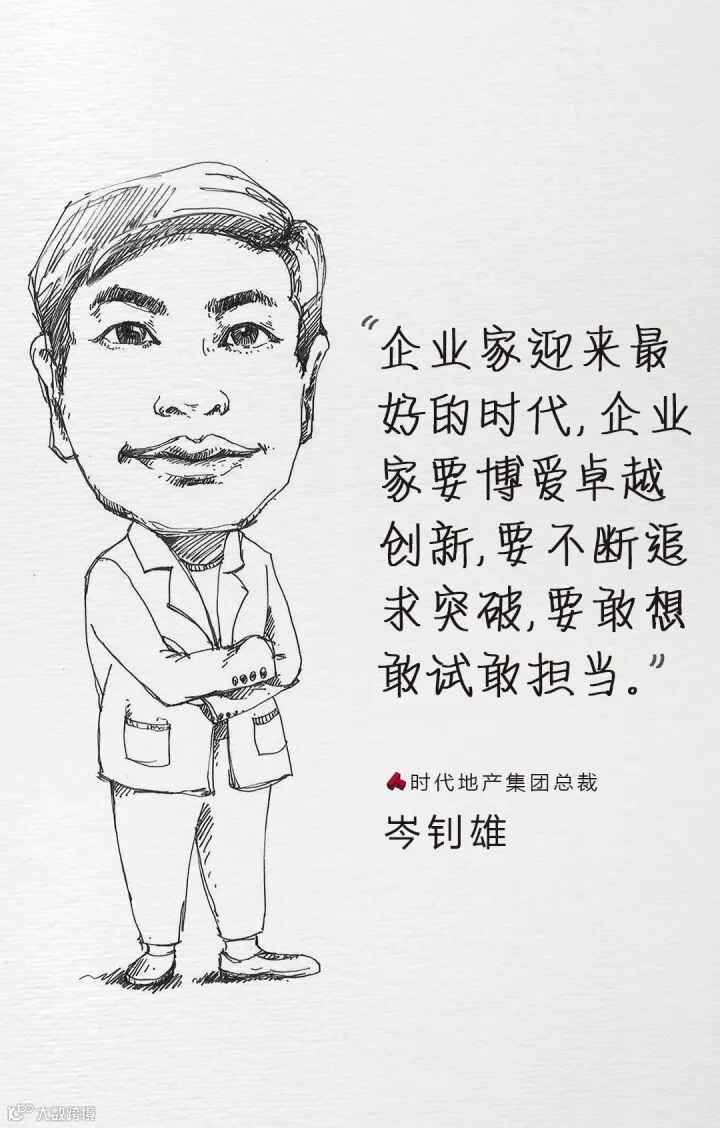 “企业家迎来最
好的时代,企业
家要博爱卓越
创新,要不断追
求突破,要敢想
敢试敢担当。”
时代地产集团总裁
岑钊雄
大数跨境